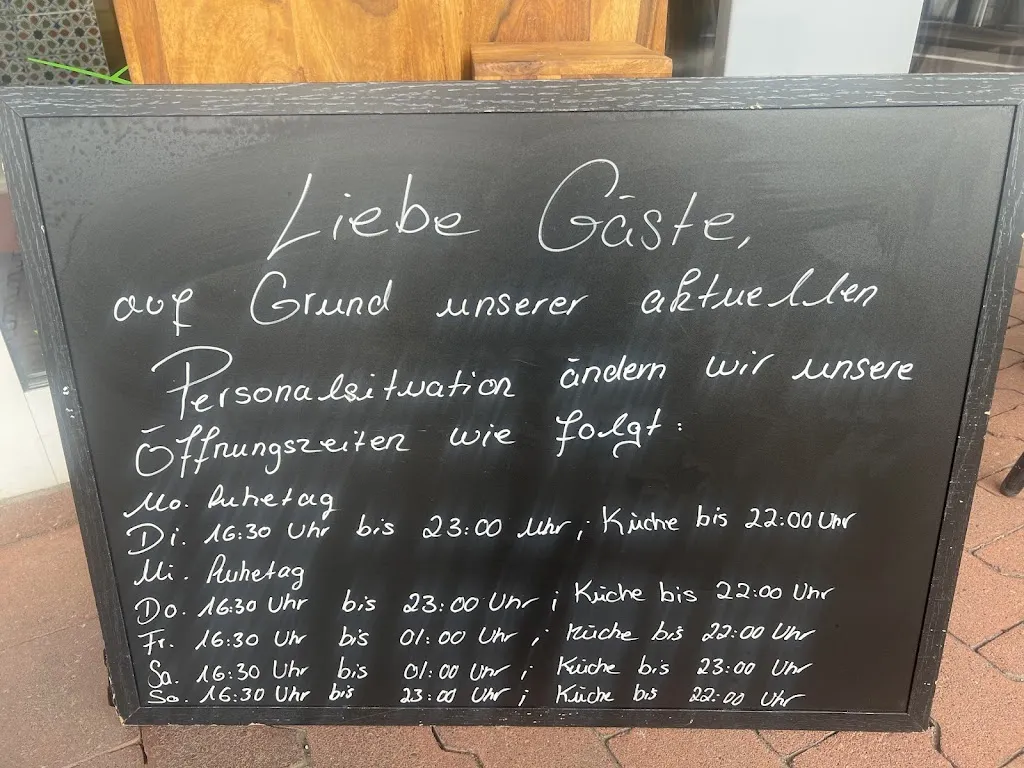 Liebe Gäste,
auf Grund unserer aktuellen
Personalsituation ändern wir unsere
Öffnungszeiten wie folgt:
Mo. Ruhetag
Di. 16:30 Uhr bis 23:00 Uhr; Küche bis 22:00 Uhr
Mi. Ruhetag
Do. 16:30 Uhr bis 23:00 Uhr; Küche bis 22:00 Uhr
Fr. 16:30 Uhr bis 01:00 Uhr; Küche bis 22:00 Uhr
Sa. 16:30 Uhr bis 01:00 Uhr; Küche bis 23:00 Uhr
So. 16:30 Uhr bis 23:00 Uhr; Küche bis 22:00 Uhr